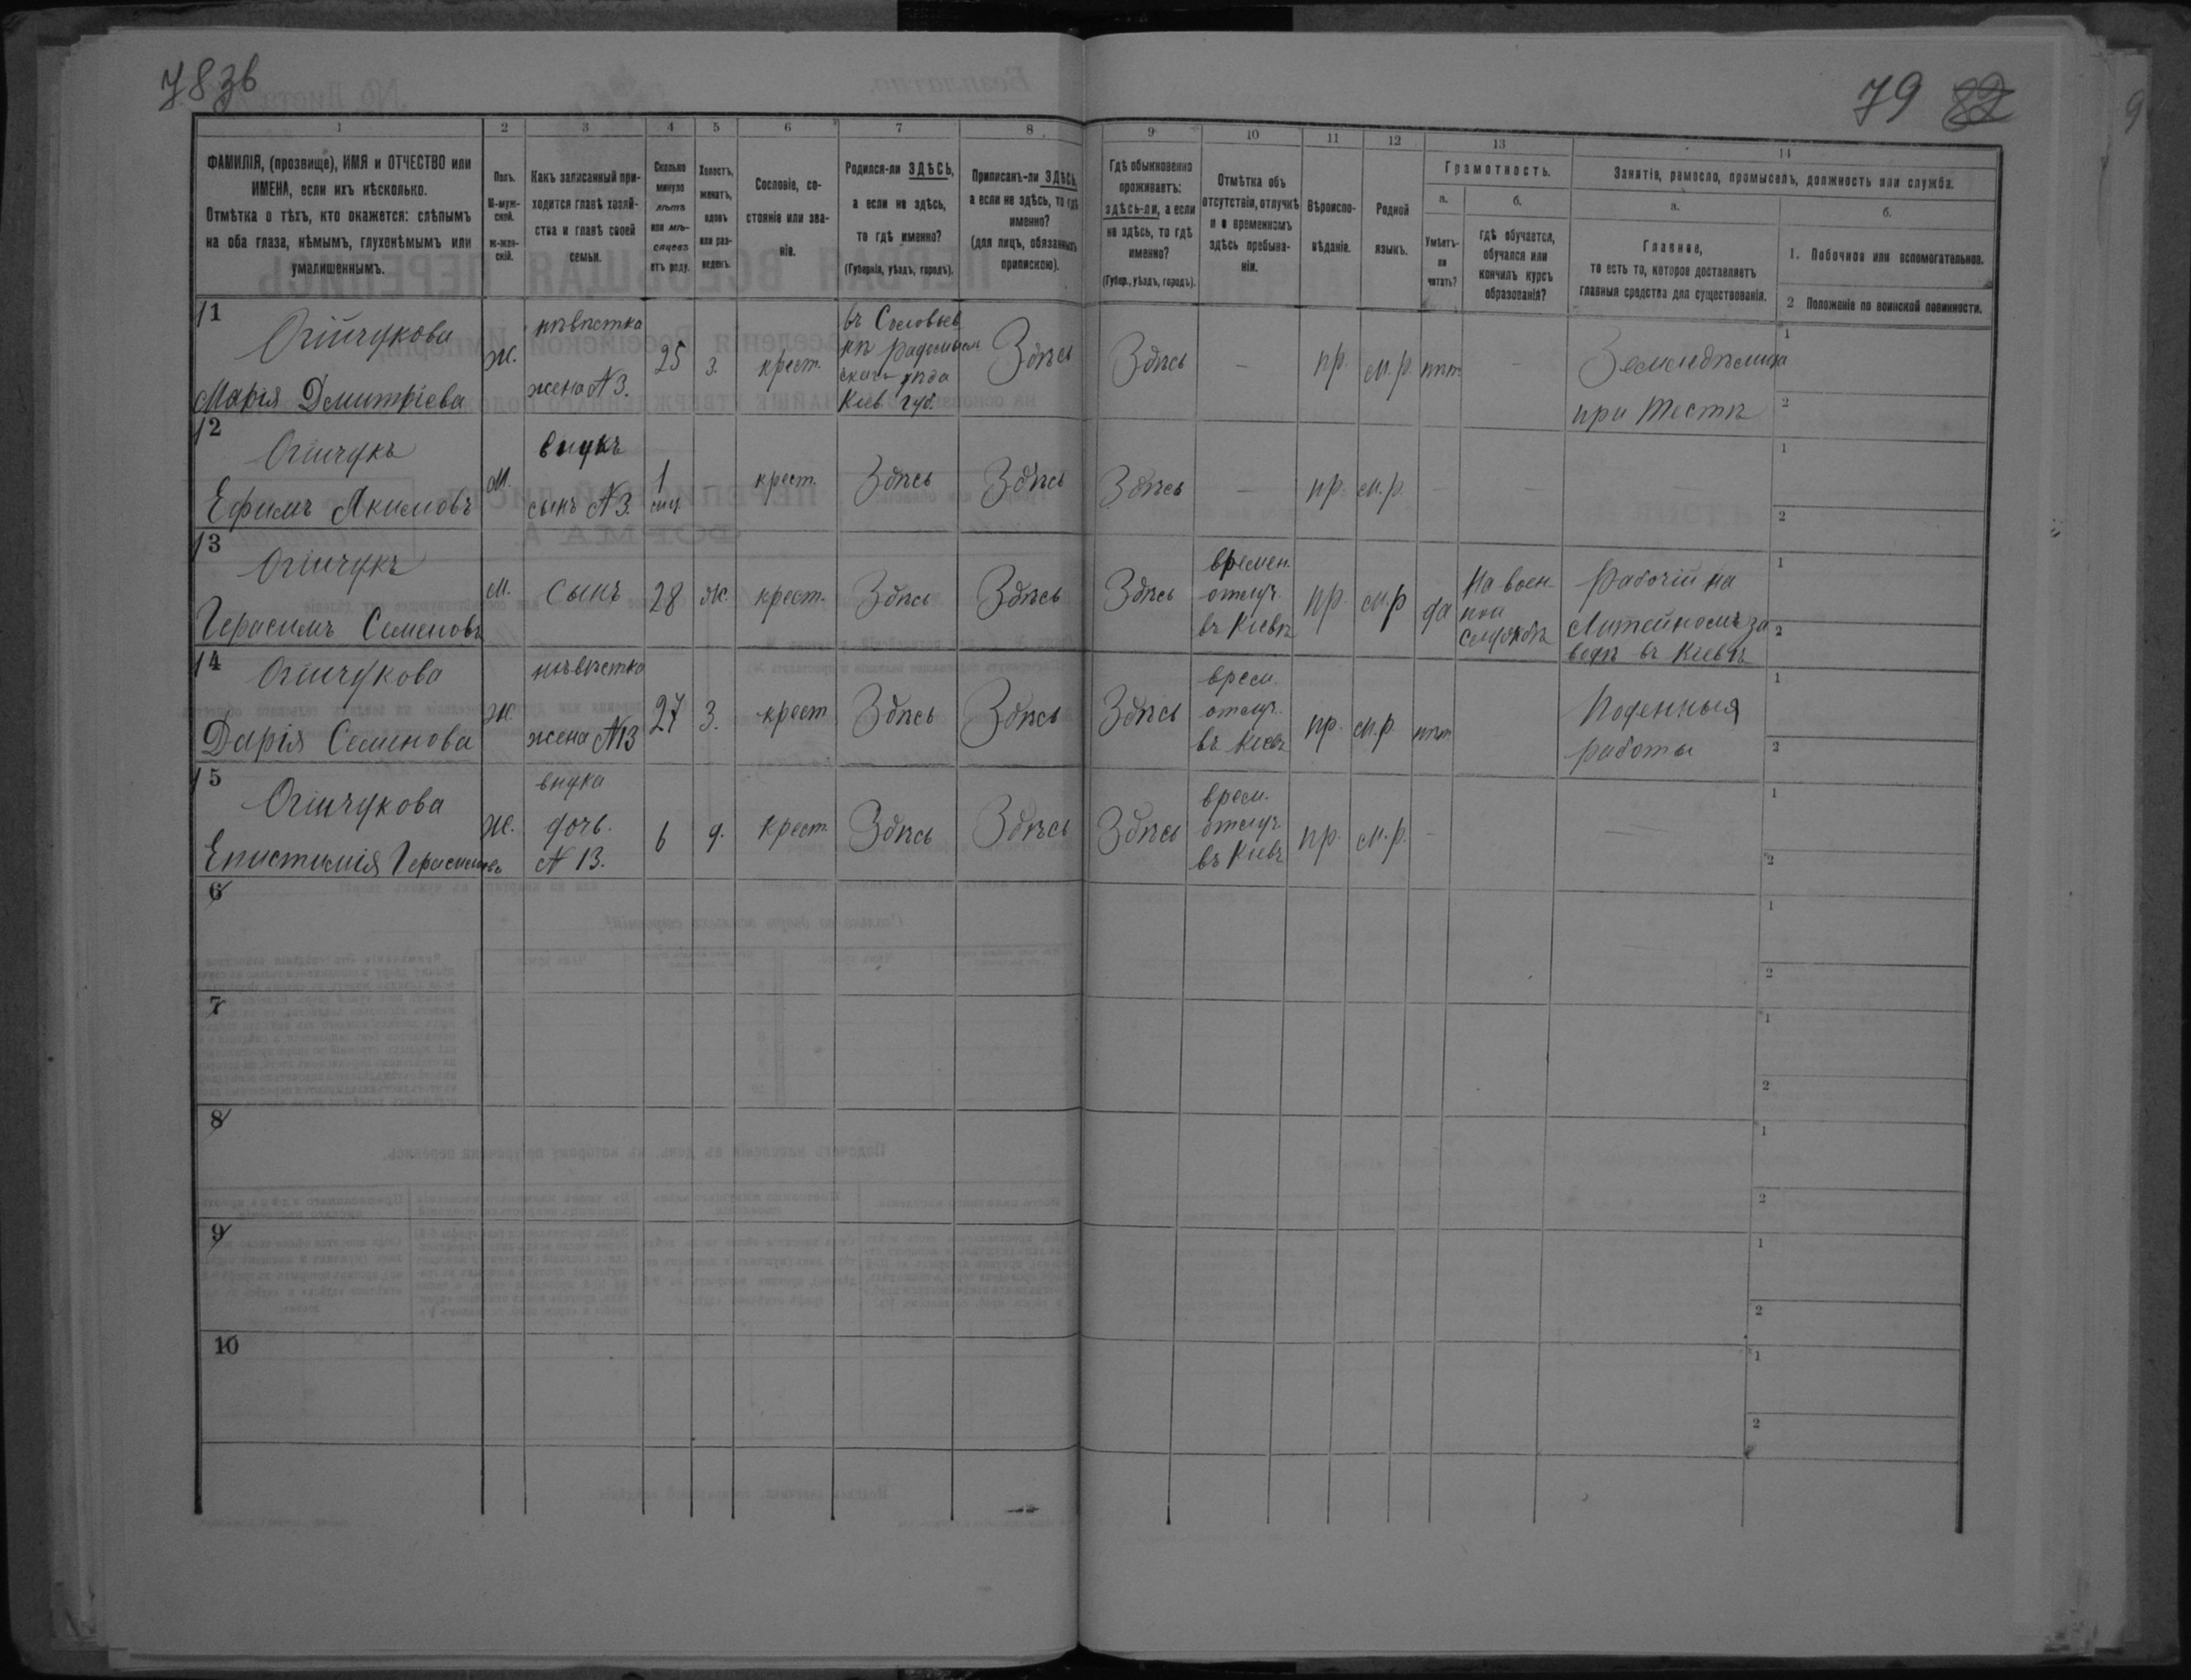 78зв
79 82
1 2 3 4 5 6 7 8 9 10 11 12 13 14
ФАМИЛІЯ, (прозвище), ИМЯ и ОТЧЕСТВО или
ИМЕНА, если ихъ нѣсколько.
Отмѣтка о тѣхъ, кто окажется: слѣпымъ
на оба глаза, нѣмымъ, глухонѣмымъ или
умалишеннымъ.
Полъ.
М-муж-
ской.
ж-жен-
скій.
Какъ записанный при-
ходится главѣ хозяй-
ства и главѣ своей
семьи.
Сколько
минуло
лѣтъ
или мѣ-
сяцевъ
отъ роду.
Холостъ,
женатъ,
вдовъ
или раз-
веденъ.
Сословіе, со-
стояніе или зва-
ніе.
Родился-ли ЗДѢСЬ,
а если не здѣсь,
то гдѣ именно?
(Губернія, уѣздъ, городъ).
Приписанъ-ли ЗДѢСЬ,
а если не здѣсь, то гдѣ
именно?
(для лицъ, обязанныхъ
припискою).
Гдѣ обыкновенно
проживаетъ:
здѣсь-ли, а если
не здѣсь, то гдѣ
именно?
(Губер., уѣздъ, городъ).
Отмѣтка объ
отсутствіи, отлучкѣ
и о временномъ
здѣсь пребыва-
ніи.
Вѣроиспо-
вѣданіе.
Родной
языкъ.
Грамотность.
а.
Умѣетъ-
ли
читать?
б.
гдѣ обучается,
обучался или
кончилъ курсъ
образованія?
Занятія, ремесло, промыселъ, должность или служба.
а.
Главное,
то есть то, которое доставляетъ
главныя средства для существованія.
б.
1. Побочное или вспомогательное.
2 Положеніе по воинской повинности.
11
Огійчукова
Марія Дмитріева
Ж.
невѣстка
жена N 3.
25
з.
крест.
въ Соловьев
кѣ Радомысл
скаго уѣзда
Кіев. губ.
Здѣсь
Здѣсь
—
пр.
м.р.
нѣт
—
Земледѣлица
при тестѣ
1
2
12
Огійчукъ
Ефимъ Якимовъ
М.
внукъ
сынъ N 3.
1
мц.
-
крест.
Здѣсь
Здѣсь
Здѣсь
—
пр.
м.р.
—
—
—
1
2
13
Огійчукъ
Герасимъ Семеновъ
М.
сынъ
28
ж.
крест.
Здѣсь
Здѣсь
Здѣсь
времен.
отлуч.
въ Кіевѣ
пр.
м.р
да
На воен-
ной
службѣ
Рабочій на
Литейномъ за
водѣ въ Кіевѣ
1
2
14
Огійчукова
Дарія Семенова
Ж.
невѣстка
жена N13
27
з.
крест
Здѣсь
Здѣсь
Здѣсь
врем.
отлуч.
въ Кіевѣ
пр.
м.р.
нѣт
Поденныя
работы
1
2
15
Огійчукова
Епистимія Герасимовъ
Ж.
внука
дочь.
N 13.
6
д.
крест.
Здѣсь
Здѣсь
Здѣсь
врем.
отлуч.
въ Кіевѣ
пр.
м.р.
—
—
1
2
6
1
2
7
1
2
8
1
2
9
1
2
10
1
2